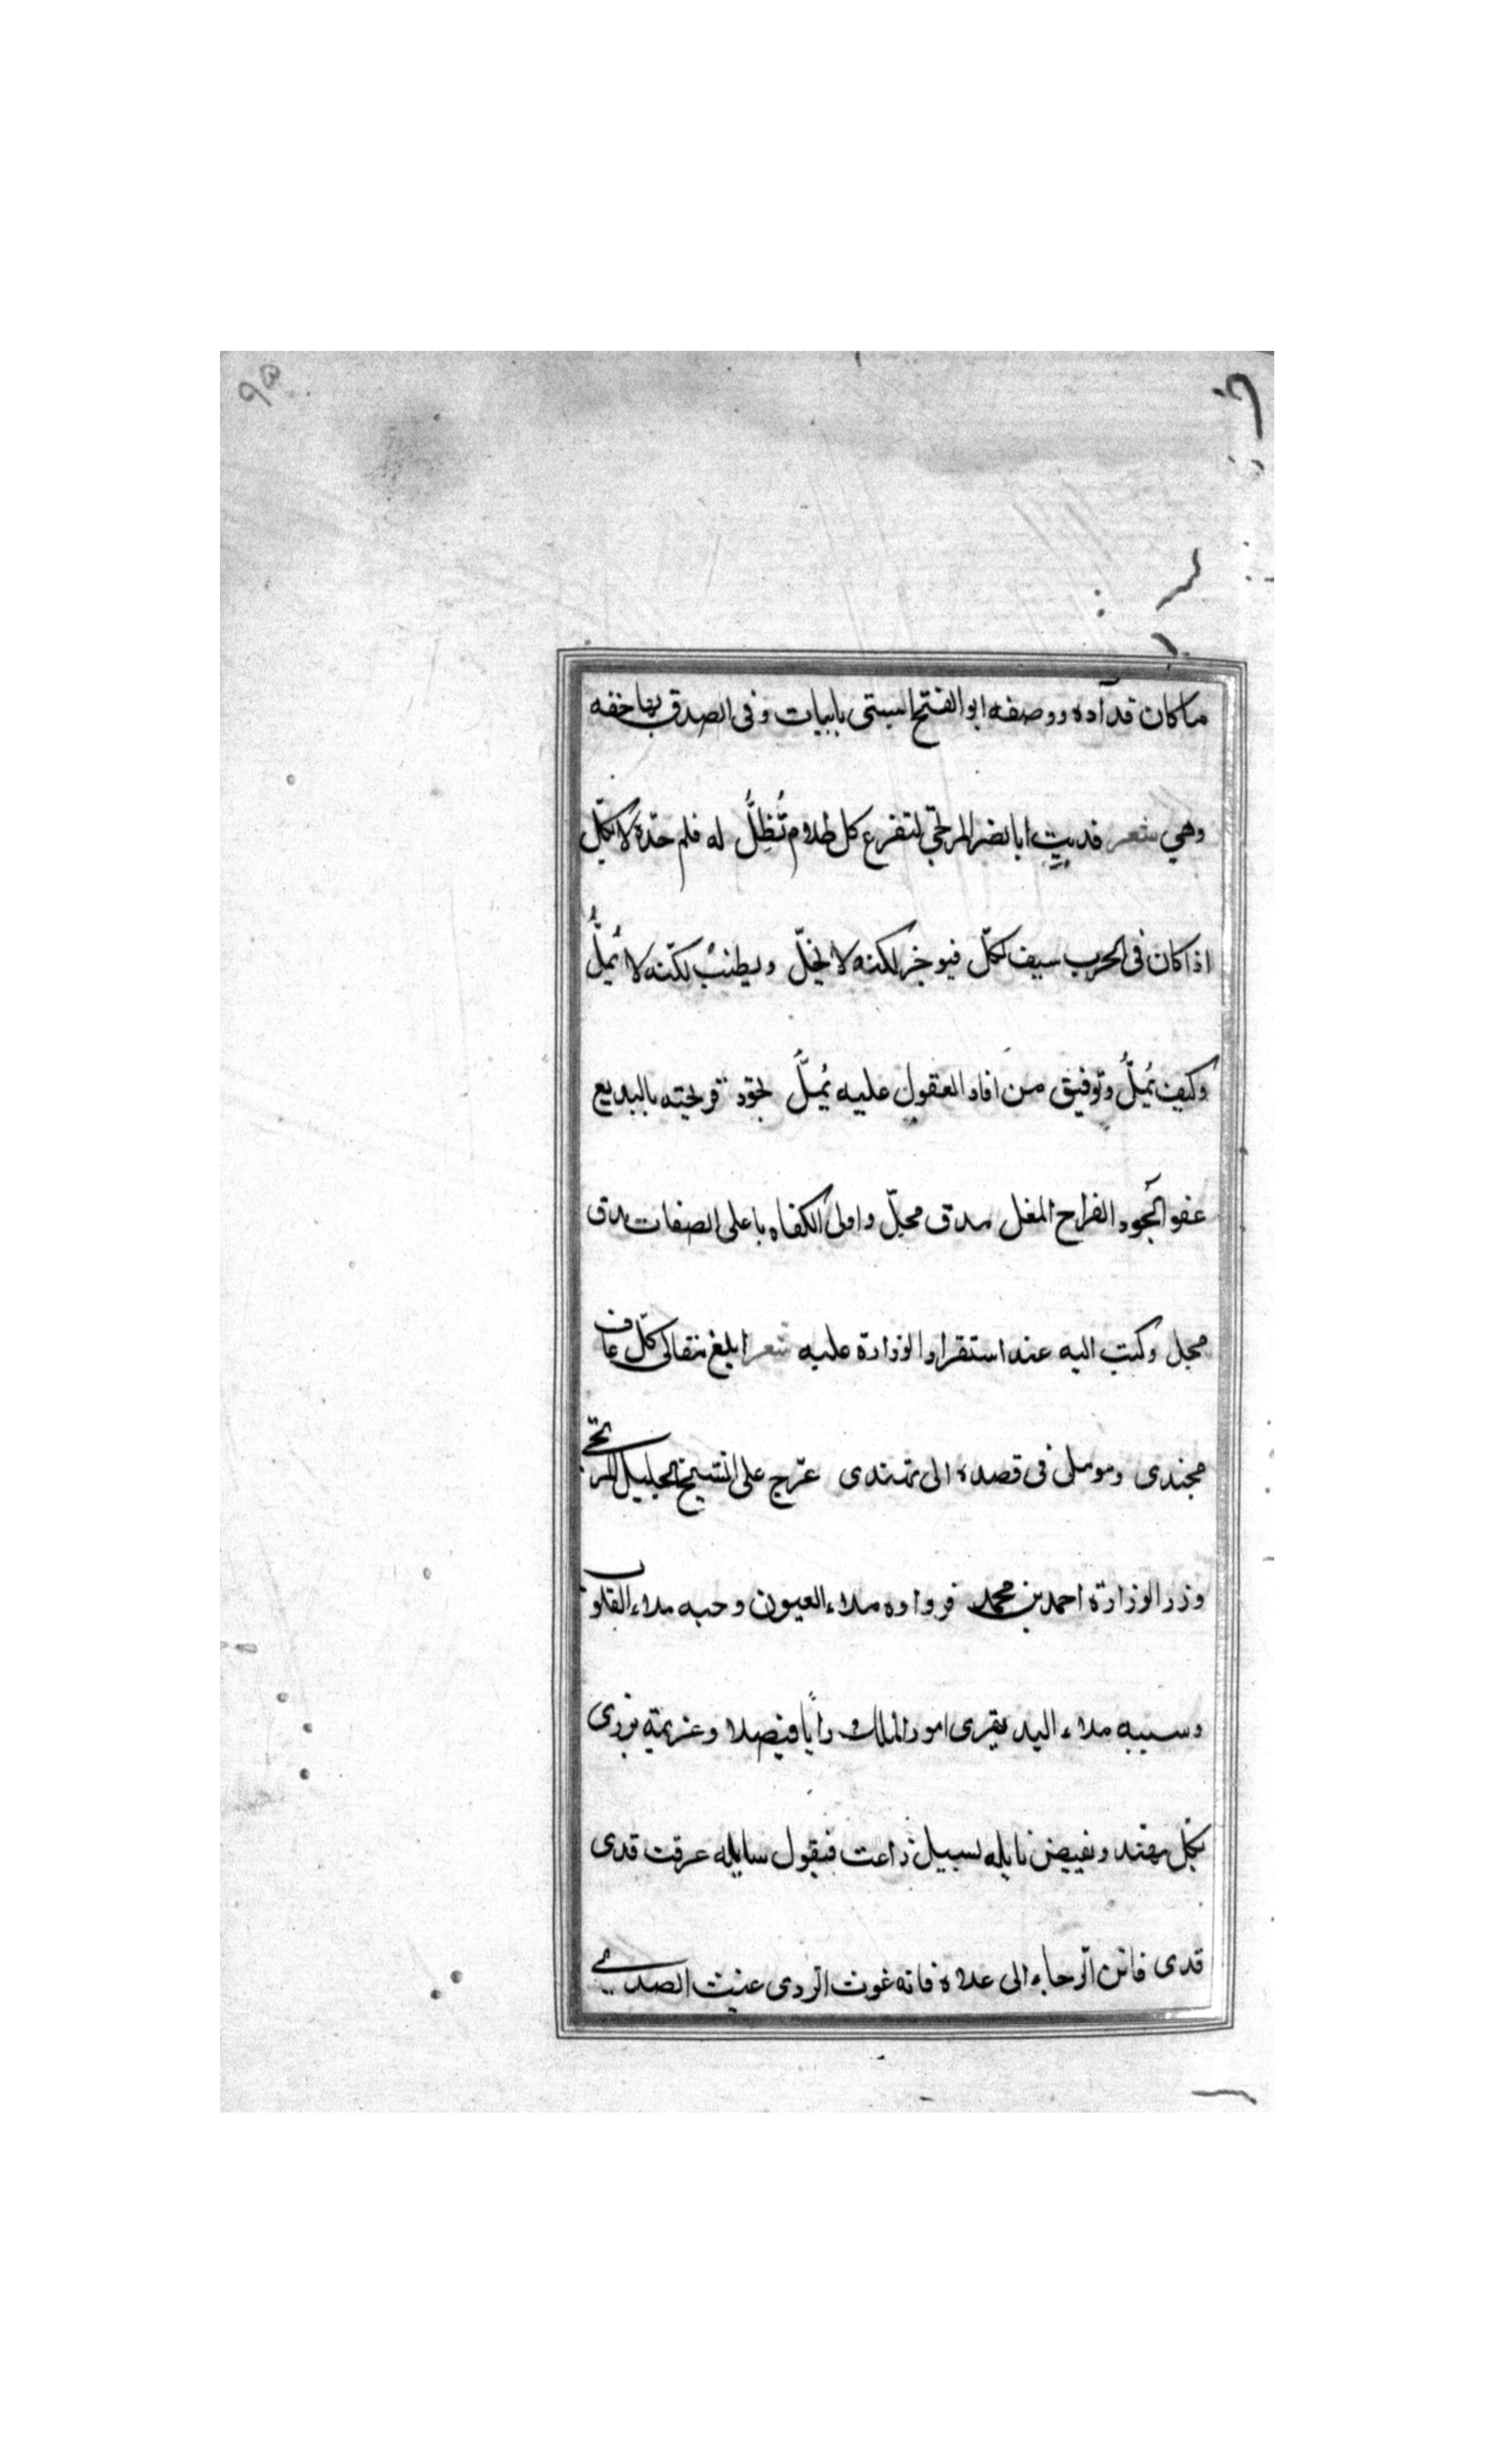 ٩۵
ما كان قد آده ووصفه ابو الفتح البستى بابيات وفى الصدق بها خفه
وهي شعر فديت ابا نصر المرتجى لتفرع كل ظلام تُظِلُّ له قلم حدّه لا يكلّ
اذا كان فى الحرب سيف لكلّ فيوخز لكنه لا يخلّ ويطنب لكنّه لا يُملُّ
وكيف يُملُّ وتوفيق من افاد العقول عليه يُملُّ تجود قريحته بالبديع
عفو الجود القراح المغل مدق محلّ واولى الكفاه باعلى الصفات مدق
محل وكتب اليه عند استقرار الوزارة عليه شعر ابلغ مقالى كلّ عاف
مجتدى وموملى فى قصده الى تمتدى عرّج على الشيخ الجليل المرتجى
وزر الوزارة احمد بن محمد فرواوه ملاء العيون وحبه ملاء القلوب
وسيبه ملاء اليد يقرى امور الملك رايًا فيصلا وعزيمة تزرى
بكل مهند ويفيض نايله لسبيل زاعت فيقول سايله عرقت قدى
قدى فاثن الرجاء الى علاه فانه غوث الردى غيث الصدى